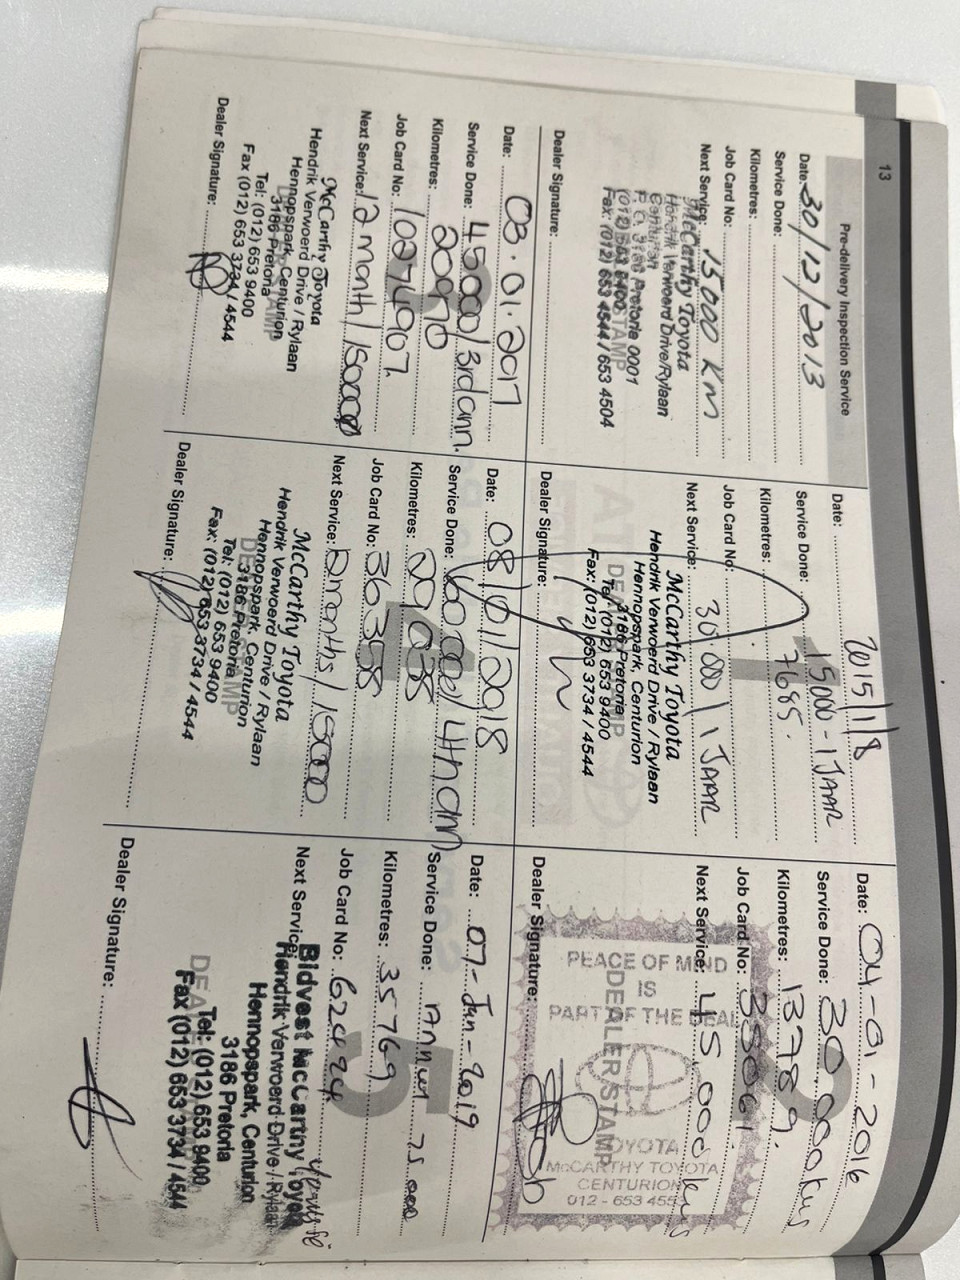 13
Pre-delivery Inspection Service
Date: 30/12/2013
Service Done:
Kilometres:
Job Card No:
Next Service: 15000 KM
McCarthy Toyota
Hendrik Verwoerd Drive/Rylaan
Centurion
P.O. 3186 Pretoria 0001
(012) 653 9400
Fax: (012) 653 4544 / 653 4504
Dealer Signature:
1
Date: 2015/1/8
Service Done: 15000 - 1 JAAR
Kilometres: 7685.
Job Card No:
Next Service: 30 000 / 1 JAAR
McCarthy Toyota
Hendrik Verwoerd Drive / Rylaan
Hennopspark, Centurion
3186 Pretoria
Tel: (012) 653 9400
Fax: (012) 653 3734 / 4544
Dealer Signature:
2
Date: 04-01-2016
Service Done: 30.000kms
Kilometres: 13789.
Job Card No:
Next Service: 45,000kms
DEALER STAMP
PEACE OF MIND
IS
PART OF THE DEAL
TOYOTA
McCARTHY TOYOTA
CENTURION
012 - 653 455
Dealer Signature:
Date: 03.01.2017
Service Done: 45000/3rd ann.
Kilometres: 20970
Job Card No: 10274907.
Next Service: 12 month/
McCarthy Toyota
Hendrik Verwoerd Drive / Rylaan
Hennopspark, Centurion
3186 Pretoria
Tel: (012) 653 9400
Fax (012) 653 3734 / 4544
Dealer Signature:
4
Date: 08/01/2018
Service Done: 60000/4th ann
Kilometres: 29038
Job Card No: 36358
Next Service: 12 months / 15000
McCarthy Toyota
Hendrik Verwoerd Drive / Rylaan
Hennopspark, Centurion
3186 Pretoria
Tel: (012) 653 9400
Fax: (012) 653 3734 / 4544
Dealer Signature:
5
Date: 07-Jan-2019
Service Done: Annual 75.000
Kilometres: 35769
Job Card No: 62494
Next Service:
Bidvest McCarthy Toyota
Hendrik Verwoerd Drive / Rylaan
Hennopspark, Centurion
3186 Pretoria
Tel: (012) 653 9400
Fax (012) 653 3734 / 4544
Dealer Signature: